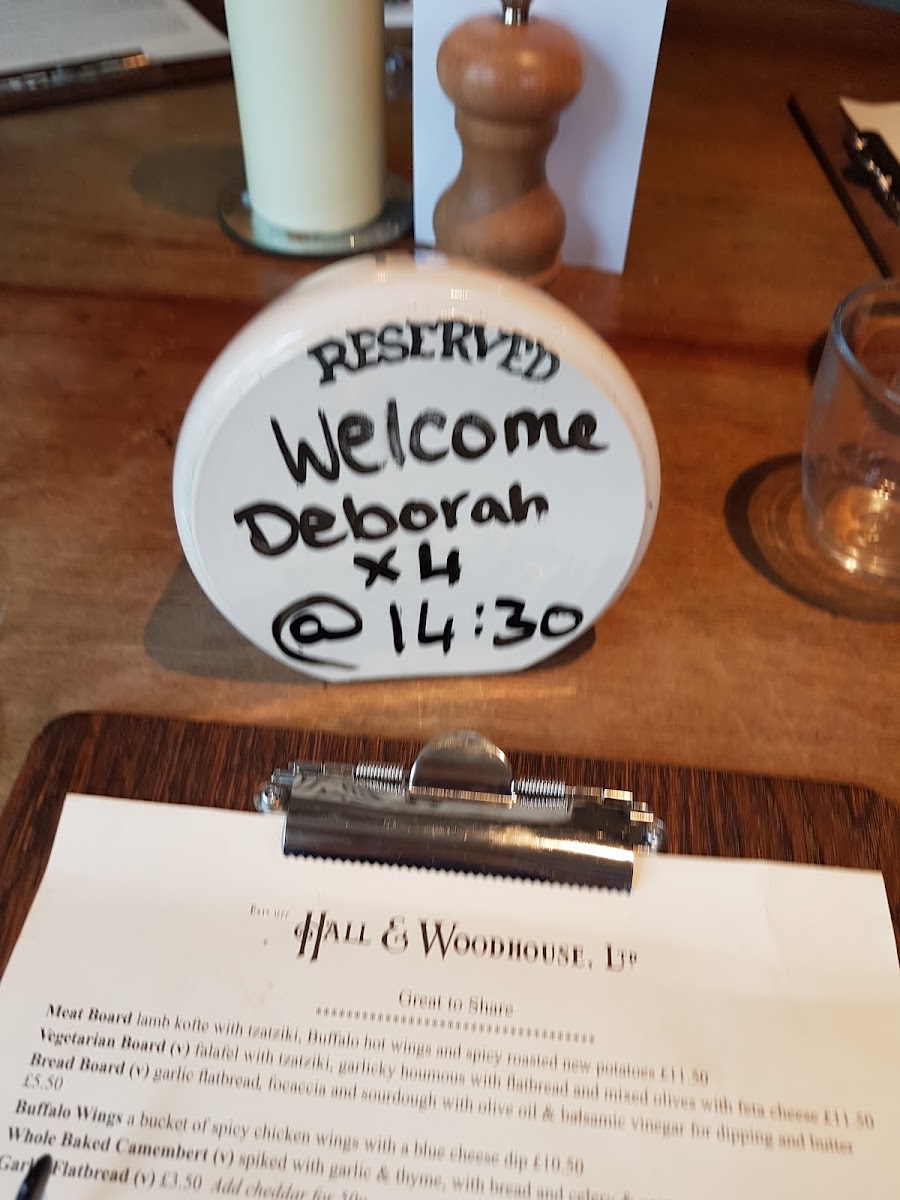 RESERVED
Welcome
Deborah
x 4
@ 14:30
HALL & WOODHOUSE, LTD
Great to Share
Meat Board lamb kofte with tzatziki, Buffalo hot wings and spicy roasted new potatoes £11.50
Vegetarian Board (v) falafel with tzatziki, garlicky houmous with flatbread and mixed olives with feta cheese £11.50
Bread Board (v) garlic flatbread, focaccia and sourdough with olive oil & balsamic vinegar for dipping and butter
£5.50
Buffalo Wings a bucket of spicy chicken wings with a blue cheese dip £10.50
Whole Baked Camembert (v) spiked with garlic & thyme, with bread and celery &
Flatbread (v) £3.50 Add cheddar for 50p